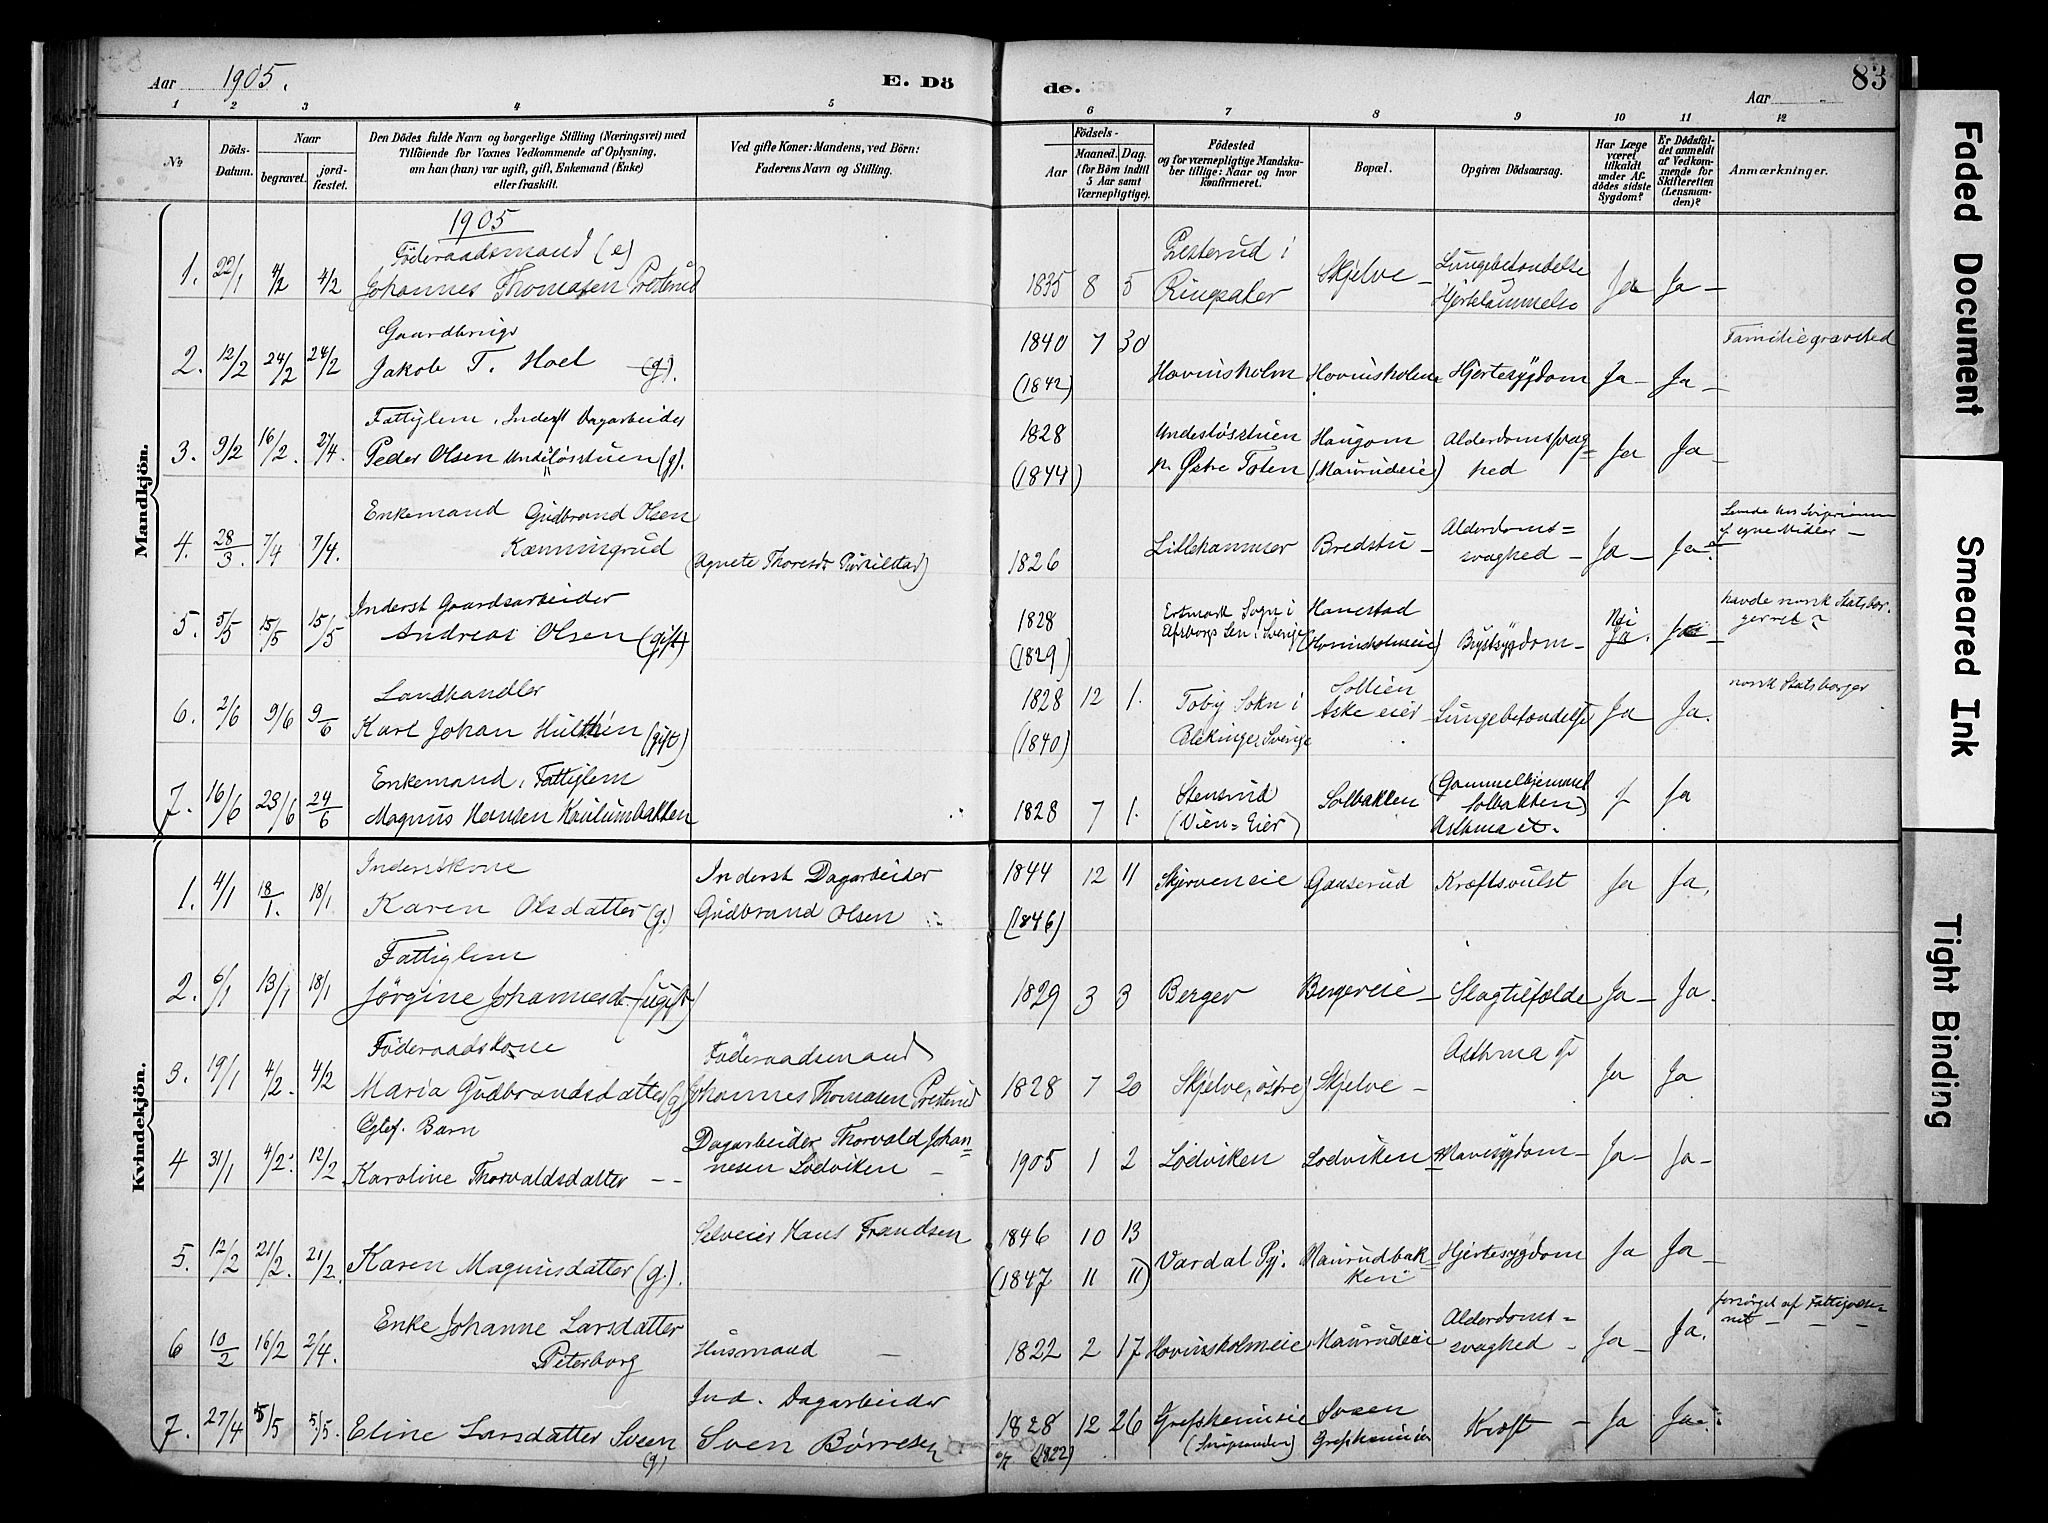 Aar 1905. E. Dö
de. Aar 83
1 2 3 4 5 6 7 8 9 10 11 12
No
Döds-Datum.
Naar
begravet.
jord-fæstet.
Den Dödes fulde Navn og borgerlige Stilling (Næringsvei) med
Tilföiende for Voxnes Vedkommende af Oplysning,
om han (hun) var ugift, gift, Enkemand (Enke)
eller fraskilt.
Ved gifte Koner: Mandens, ved Börn:
Faderens Navn og Stilling.
Födsels-
Aar
Maaned. Dag.
(for Börn indtil
5 Aar samt
Værnepligtige).
Födested
og for værnepligtige Mandska-
ber tillige: Naar og hvor
konfirmeret.
Bopæl.
Opgiven Dödsaarsag.
Har Læge
været
tilkaldt
under Af-
dödes sidste
Sygdom?
Er Dödsfal-
det anmeldt
af Vedkom-
mende for
Skifteretten
(Lensman-
den)?
Anmærkninger.
Mandkjön.
1905
Föderaadsmand (e)
1. 22/1 4/2 4/2 Johannes Thomasen Presterud 1835 8 5 Presterud i
Ringsaker Skjelve - Lungebetændelse
Hjertelammelse Ja Ja -
Gaardbruger
2. 12/2 24/2 24/2 Jakob T. Hoel (g). 1840 7 30
(1842) Hovinsholm Hovinsholm Hjertesygdom Ja - Ja - Familiegravsted
Fattiglem, Inderst Dagarbeider
3. 9/2 16/2. 2/4. Peder Olsen Undeslösstuen (g). 1828
(1844) Undeslösstuen
p. Østre Toten Haugom
(Maurudeie) Alderdomssvag=
hed Ja Ja -
Enkemand Gudbrand Olsen
4. 28/3. 7/4 7/4. Kæmningrud (Agnete Thoresdr 1826 Lillehammer Bredstu - Alderdoms=
svaghed - Ja - Ja.
af egne Midler -
Inderst Gaardsarbeider
5. 5/5 15/5 15/5 Andreas Olsen (gift) 1828
(1829) Sogn i
Elfsborgs Len i Sverige Hanestad
(Hovinsholmeie) Brystsygdom - Nei
Ja. havde norsk Statsbor-
gerret?
Landhandler
6. 2/6 9/6 9/6 Karl Johan Hulthén (gift) 1828 12 1.
(1840) Toby Sokn i
Blekinge, Sverige Sollien
Askeeier - Lungebetændelse Ja Ja. norsk Statsborger
Enkemand, Fattiglem
7. 16/6 23/6 24/6 Magnus Hansen Kaulumbakken 1828 7 1. Stensrud
(Vien=Eier) Solbakken (Gammelhjemmet
Solbakken)
Asthma Ja
Kvindekjön.
Inderstkone
1. 4/1 18/1. 18/1 Karen Olsdatter (g.) Inderst Dagarbeider
Gudbrand Olsen 1844 12 11
(1846) Skjerveneie Gaaserud Kræftsvulst Ja Ja.
Fattiglem
2. 6/1 13/1 18/1 Jörgine Johannesd. (ugift) 1829 3 3 Berger Bergereie - Slagtilfælde Ja - Ja.
Föderaadskone
3. 19/1 4/2. 4/2 Maria Gudbrandsdatter (g) Föderaadsmand
Johannes Thomasen Presterud 1828 7 20 Skjelve, östre Skjelve - Asthma Ja Ja
Egtef. Barn
4 31/1 4/2. 12/2 Karoline Thorvaldsdatter - - Dagarbeider Thorvald Johan=
nesen Lodviken - 1905 1 2 Lodviken Lodviken Mavesygdom - Ja - Ja -
5. 12/2 21/2. 21/2. Karen Magnusdatter (g.). Selveier Hans Frandsen 1846 10 13
(1847 11 11) Vardal Pgj. Maurudbak=
ken Hjertesygdom Ja Ja -
Enke Johanne Larsdatter
6 10/2 16/2 2/4. Peterborg Husmand - 1822 2 17 Hovinsholmeie Maurudeie Alderdoms=
svaghed - Ja - Ja. forsörget af Fattigvæse-
net - - -
7. 27/4 5/5 5/5. Eline Larsdatter Sveen
(g) Ind. Dagarbeider
Sven Børresen 1828 12 26
(1822) Grefsheimeie Sveen
Grefsheimeie Kræft - Ja Ja -
Faded Document
Smeared Ink
Tight Binding